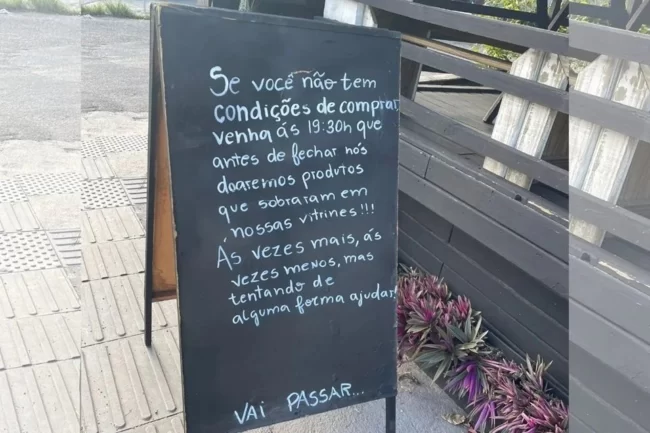 Se você não tem
condições de comprar
venha ás 19:30h que
antes de fechar nós
doaremos produtos
que sobraram em
nossas vitrines!!!
Ás vezes mais, ás
vezes menos, mas
tentando de
alguma forma ajudar!
VAI PASSAR...